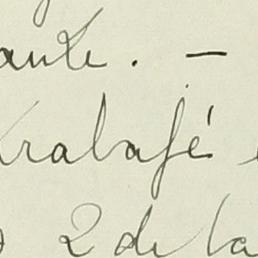 ante. -
trabajé
2 de la